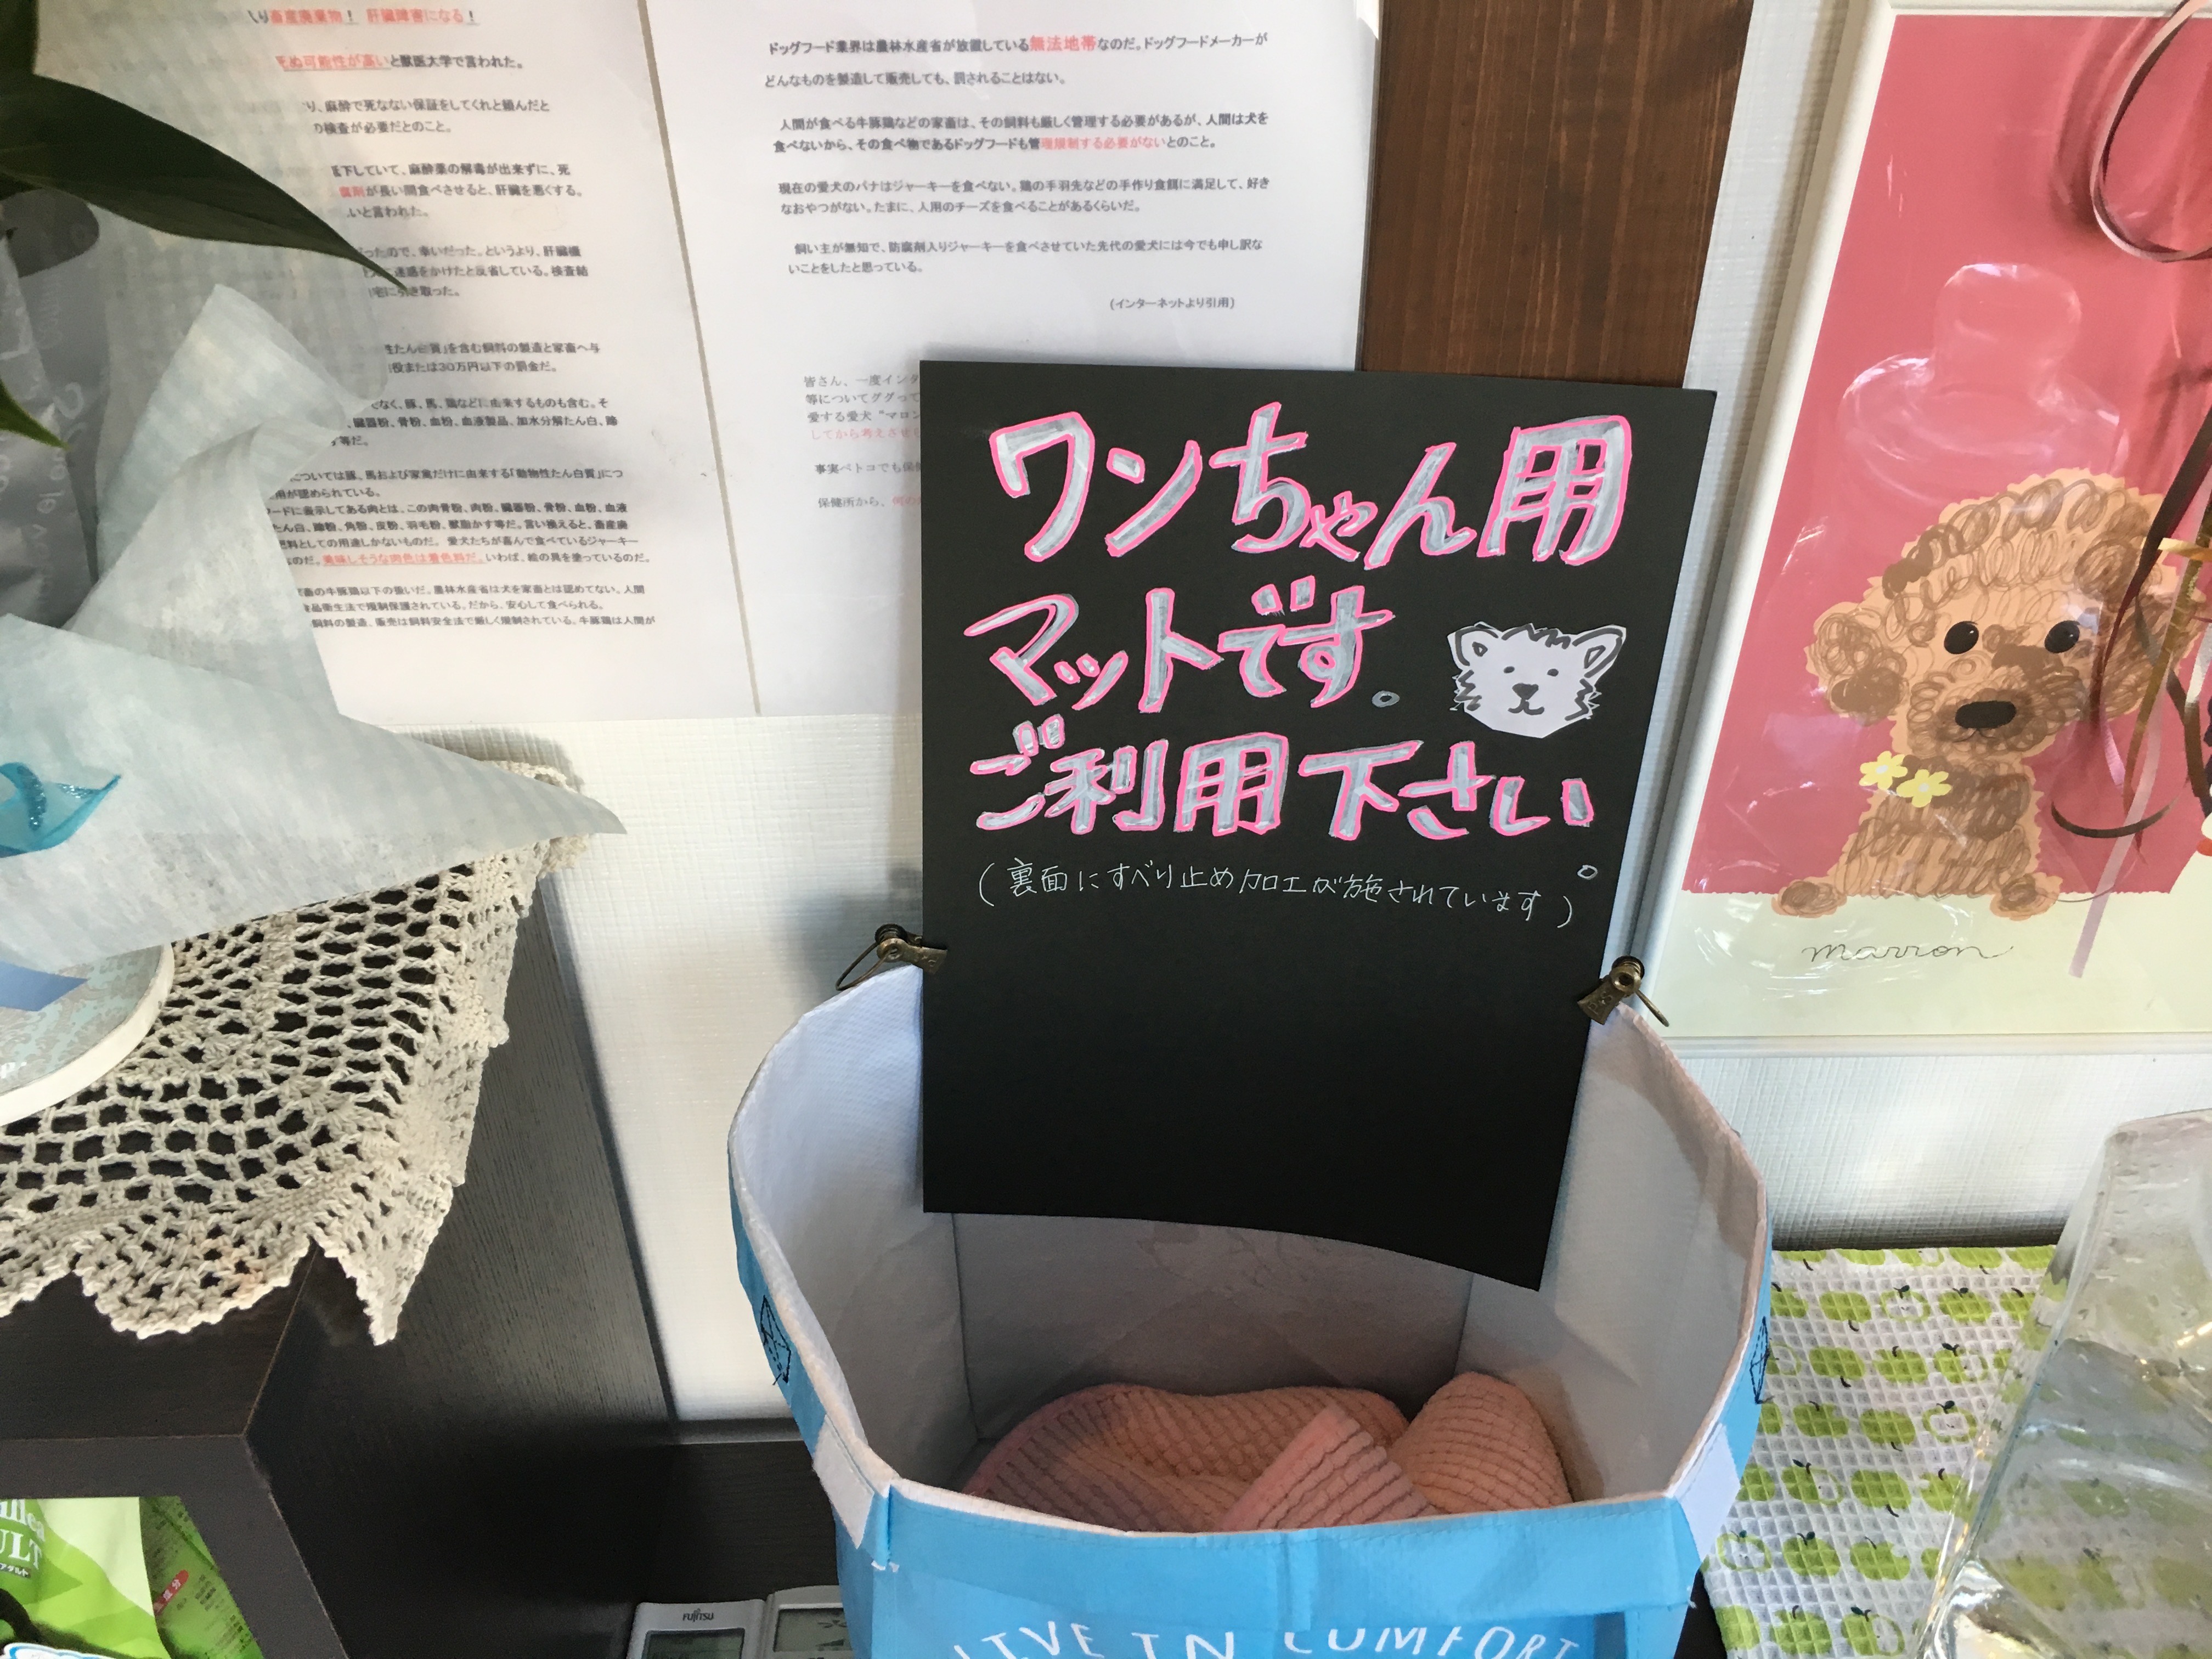 畜産廃棄物！ 肝臓障害になる！
死ぬ可能性が高いと獣医大学で言われた。
り、麻酔で死なない保証をしてくれと頼んだと
の検査が必要だとのこと。
下していて、麻酔薬の解毒が出来ずに、死
腐剤が長い間食べさせると、肝臓を悪くする。
いと言われた。
ったので、幸いだった。というより、肝臓機
迷惑をかけたと反省している。検査結
宅に引き取った。
性たん白質」を含む飼料の製造と家畜へ与
役または30万円以下の罰金だ。
でなく、豚、馬、鶏などに由来するものも含む。そ
、臓器粉、骨粉、血粉、血液製品、加水分解たん白、蹄
等だ。
については豚、馬および家禽だけに由来する「動物性たん白質」につ
用が認められている。
ードに表示してある肉とは、この肉骨粉、肉粉、臓器粉、骨粉、血粉、血液
たん白、蹄粉、角粉、皮粉、羽毛粉、獣脂かす等だ。言い換えると、畜産廃
肥料としての用途しかないものだ。 愛犬たちが喜んで食べているジャーキー
なのだ。美味しそうな肉色は着色料だ。いわば、絵の具を塗っているのだ。
畜の牛豚鶏以下の扱いだ。農林水産省は犬を家畜とは認めてない。人間
食品衛生法で規制保護されている。だから、安心して食べられる。
飼料の製造、販売は飼料安全法で厳しく規制されている。牛豚鶏は人間が
ドッグフード業界は農林水産省が放置している無法地帯なのだ。ドッグフードメーカーが
どんなものを製造して販売しても、罰されることはない。
人間が食べる牛豚鶏などの家畜は、その飼料も厳しく管理する必要があるが、人間は犬を
食べないから、その食べ物であるドッグフードも管理規制する必要がないとのこと。
現在の愛犬のパナはジャーキーを食べない。鶏の手羽先などの手作り食餌に満足して、好き
なおやつがない。たまに、人用のチーズを食べることがあるくらいだ。
飼い主が無知で、防腐剤入りジャーキーを食べさせていた先代の愛犬には今でも申し訳な
いことをしたと思っている。
(インターネットより引用)
皆さん、一度インタ
等についてググって
愛する愛犬 “マロン
してから考えさせ
事実ペトコでも保健
保健所から、何の
ワンちゃん用
マットです。
ご利用下さい。
(裏面にすべり止め加工が施されています)
marron
ULT
アダルト
成分
FUJITSU
LIVE IN COMFORT